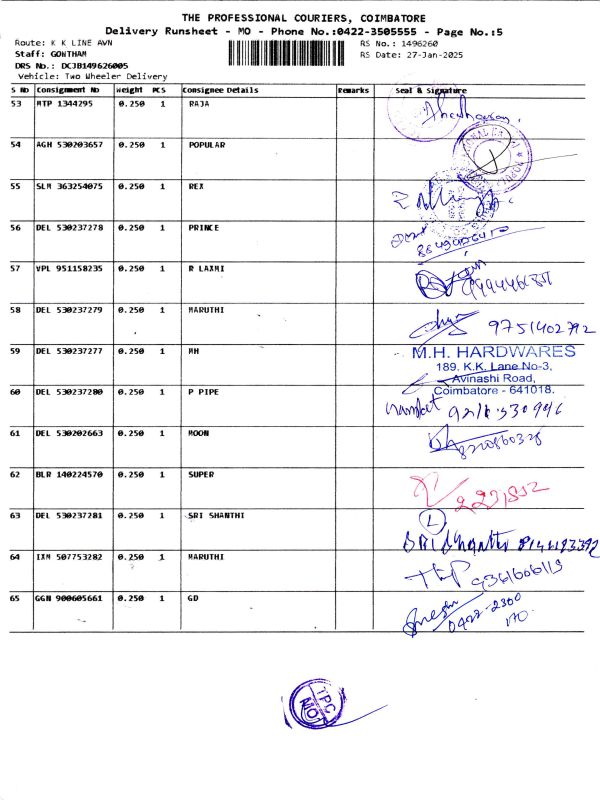 THE PROFESSIONAL COURIERS, COIMBATORE
Delivery Runsheet - MO - Phone No.:0422-3505555 - Page No.:5
Route: K K LINE AVN
RS No.: 1496260
Staff: GONTHAM
RS Date: 27-Jan-2025
DRS No.: DCJB149626005
Vehicle: Two Wheeler Delivery
S No Consignment No Weight PCS Consignee Details Remarks Seal & Signature
53 MTP 1344295 0.250 1 RAJA
54 AGH 530203657 0.250 1 POPULAR
55 SLM 363254075 0.250 1 REX
56 DEL 530237278 0.250 1 PRINCE
57 VPL 951158235 0.250 1 R LAXMI
58 DEL 530237279 0.250 1 MARUTHI
9751402792
59 DEL 530237277 0.250 1 MH
M.H. HARDWARES
189, K.K. Lane No-3,
Avinashi Road,
Coimbatore - 641018.
60 DEL 530237280 0.250 1 P PIPE
61 DEL 530202663 0.250 1 MOON
62 BLR 140224570 0.250 1 SUPER
63 DEL 530237281 0.250 1 SRI SHANTHI
64 IXM 507753282 0.250 1 MARUTHI
65 GGN 900605661 0.250 1 GD
0422-2300
TPC
MOT